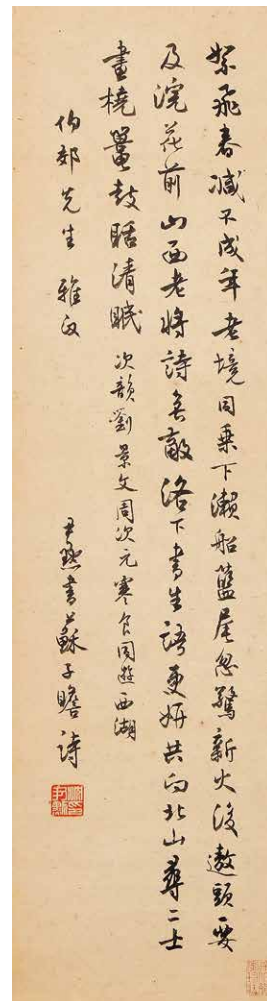 絮飛春減不成年老境同乘下瀨船籃尾忽驚新火後遨頭要
及浣花前山西老將詩無敵洛下書生語更妍共向北山尋二士
畫橈鼉鼓聒清眠 次韻劉景文周次元寒食同遊西湖
伯郊先生 雅政
尹默書蘇子瞻詩